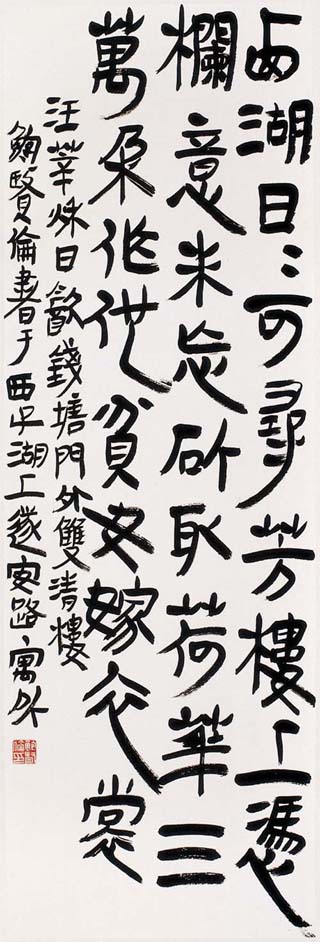 西湖日〻可尋芳樓上憑
欄意未忘斫取荷華三
萬朵作他貧女嫁衣裳
汪莘秋日飲錢塘門外雙清樓
鮑賢倫書于西子湖上遂安路寓所